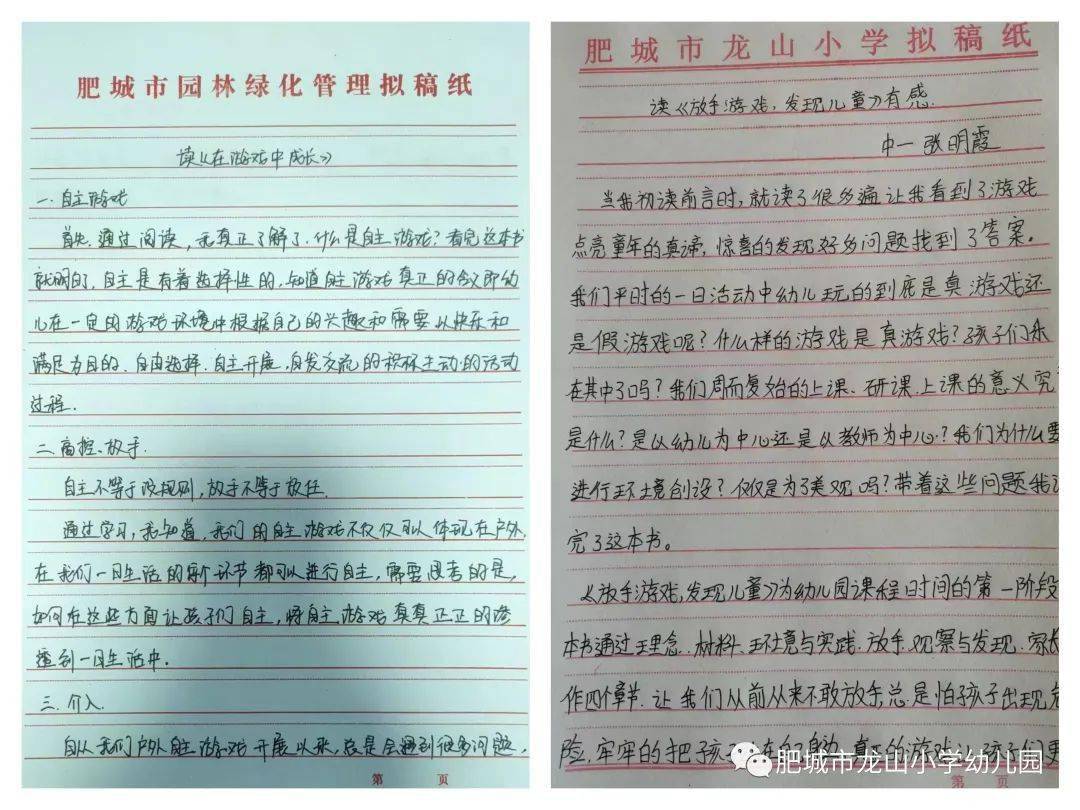 肥城市园林绿化管理拟稿纸
读《在游戏中成长》
一.自主游戏
首先.通过阅读,我真正了解了.什么是自主游戏?看完这本书
就明白,自主是有着选择性的,知道自主游戏真正的含义即幼
儿在一定的游戏环境中根据自己的兴趣和需要以快乐和
满足为目的.自由选择.自主开展.自发交流的积极主动的活动
过程.
二.高控、放手.
自主不等于没规则,放手不等于放任.
通过学习,我知道,我们的自主游戏不仅仅可以体现在户外,
在我们一日生活的环节都可以进行自主,需要思考的是,
如何在这些方面让孩子们自主,将自主游戏真真正正的渗
透到一日生活中.
三.介入.
自从我们户外自主游戏开展以来,总是会遇到很多问题,
第 页
肥城市龙山小学拟稿纸
读《放手游戏,发现儿童》有感.
中一 张明霞
当我初读前言时,就读了很多遍.让我看到了游戏
点亮童年的真谛,惊喜的发现好多问题找到了答案。
我们平时的一日活动中幼儿玩的到底是真游戏还
是假游戏呢?什么样的游戏是真游戏?孩子们乐
在其中了吗?我们周而复始的上课.研课.上课的意义究
是什么?是以幼儿为中心还是以教师为中心?我们为什么要
进行环境创设?仅仅是为了美观吗?带着这些问题我
完了这本书。
《放手游戏,发现儿童》为幼儿园课程时间的第一阶段
本书通过理念.材料.环境与实践.放手.观察与发现.家长
作四个章节.让我们从前从来不敢放手,总是怕孩子出现危
险,牢牢的把孩子 真的游戏 孩子们更
肥城市龙山小学幼儿园
第 页